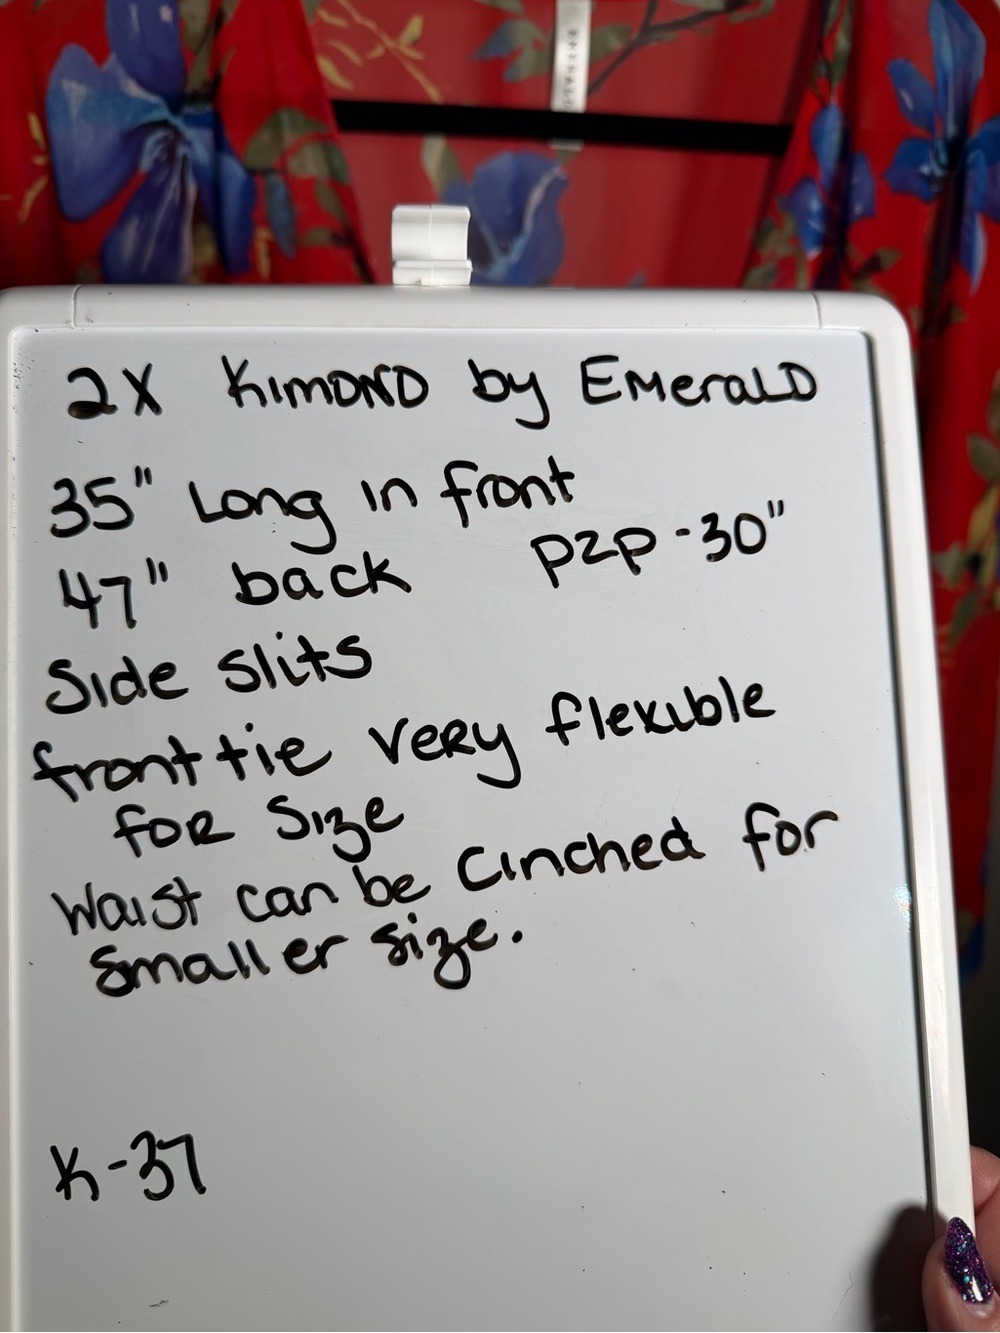 2X Kimono by Emerald
35" Long in front
47" back p2p - 30"
Side slits
front tie very flexible
for size
Waist can be cinched for
smaller size.
K-37